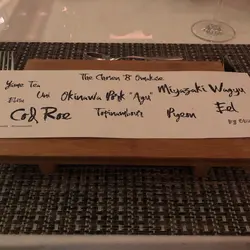 The Chosen 8 Omakase
Yame Tea Uni Okinawa Pork "Agu" Miyazaki Wagyu
Cod Roe Topinambour Pigeon Eel
by